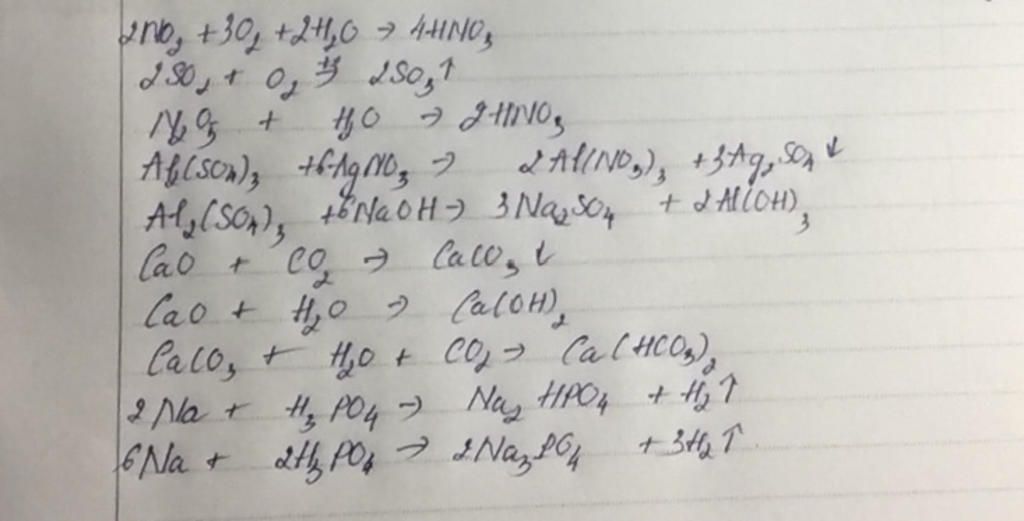 2NO₂ + 3O₂ + 2H₂O → 4HNO₃
2SO₂ + O₂ ⇌ 2SO₃↑
N₂O₅ + H₂O → 2HNO₃
Al₂(SO₄)₃ + 6AgNO₃ → 2Al(NO₃)₃ + 3Ag₂SO₄↓
Al₂(SO₄)₃ + 6NaOH → 3Na₂SO₄ + 2Al(OH)₃
CaO + CO₂ → CaCO₃↓
CaO + H₂O → Ca(OH)₂
CaCO₃ + H₂O + CO₂ → Ca(HCO₃)₂
2Na + H₃PO₄ → Na₂HPO₄ + H₂↑
6Na + 2H₃PO₄ → 2Na₃PO₄ + 3H₂↑